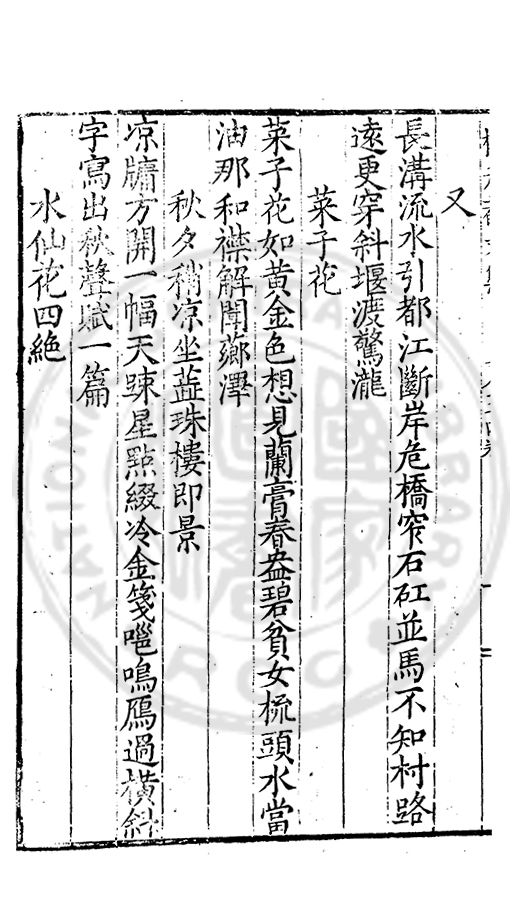 又
長溝流水引都江斷岸危橋窄石矼並馬不知村路
遠更穿斜堰渡驚瀧
菜子花
菜子花如黃金色想見蘭膏春盎碧貧女梳頭水當
油那和襟解聞薌澤
秋夕稍凉坐蕋珠樓即景
凉牗方開一幅天踈星點綴冷金箋嗈鳴鴈過橫斜
字寫出秋聲賦一篇
水仙花四絶